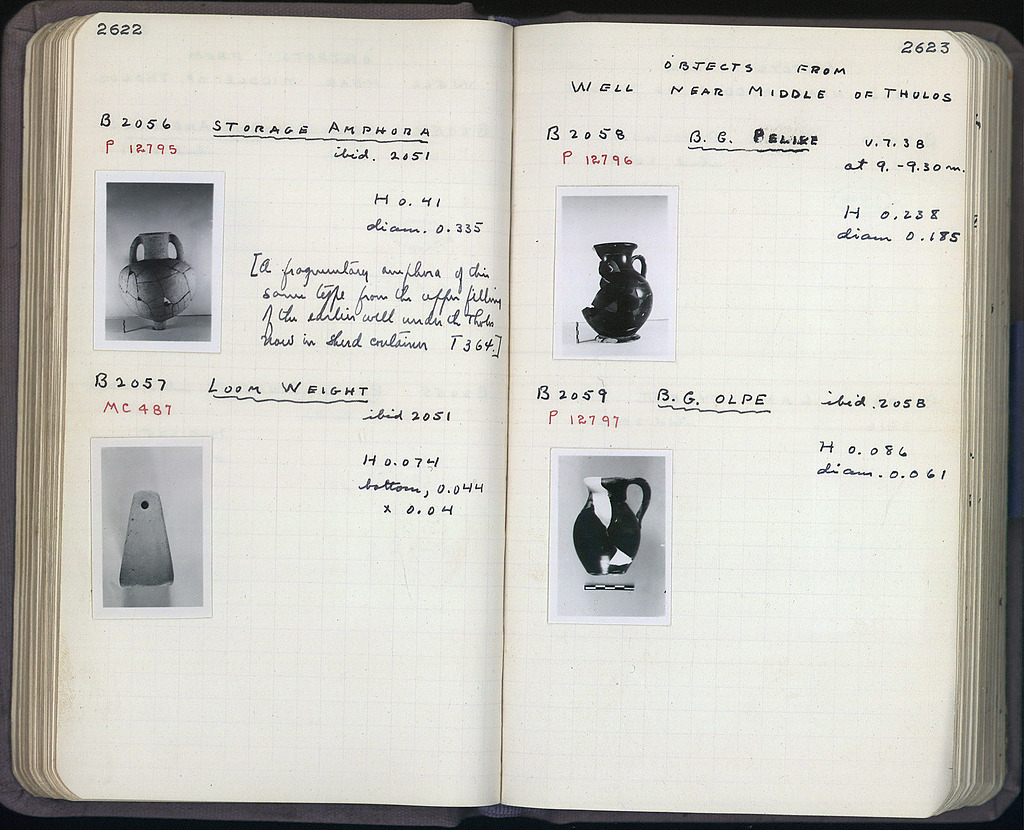 2622
B 2056 STORAGE AMPHORA
P 12795 ibid. 2051
H 0.41
diam. 0.335
[A fragmentary amphora of this
same type from the upper filling
of the earlier well under the Tholos
now in shed container T 364.]
B 2057 LOOM WEIGHT
MC 487 ibid 2051
H 0.074
bottom, 0.044
x 0.04
2623
OBJECTS FROM
WELL NEAR MIDDLE OF THOLOS
B 2058 B. G. PELIKE v.7.38
P 12796 at 9.-9.30 m.
H 0.238
diam 0.185
B 2059 B. G. OLPE ibid. 2058
P 12797
H 0.086
diam. 0.061